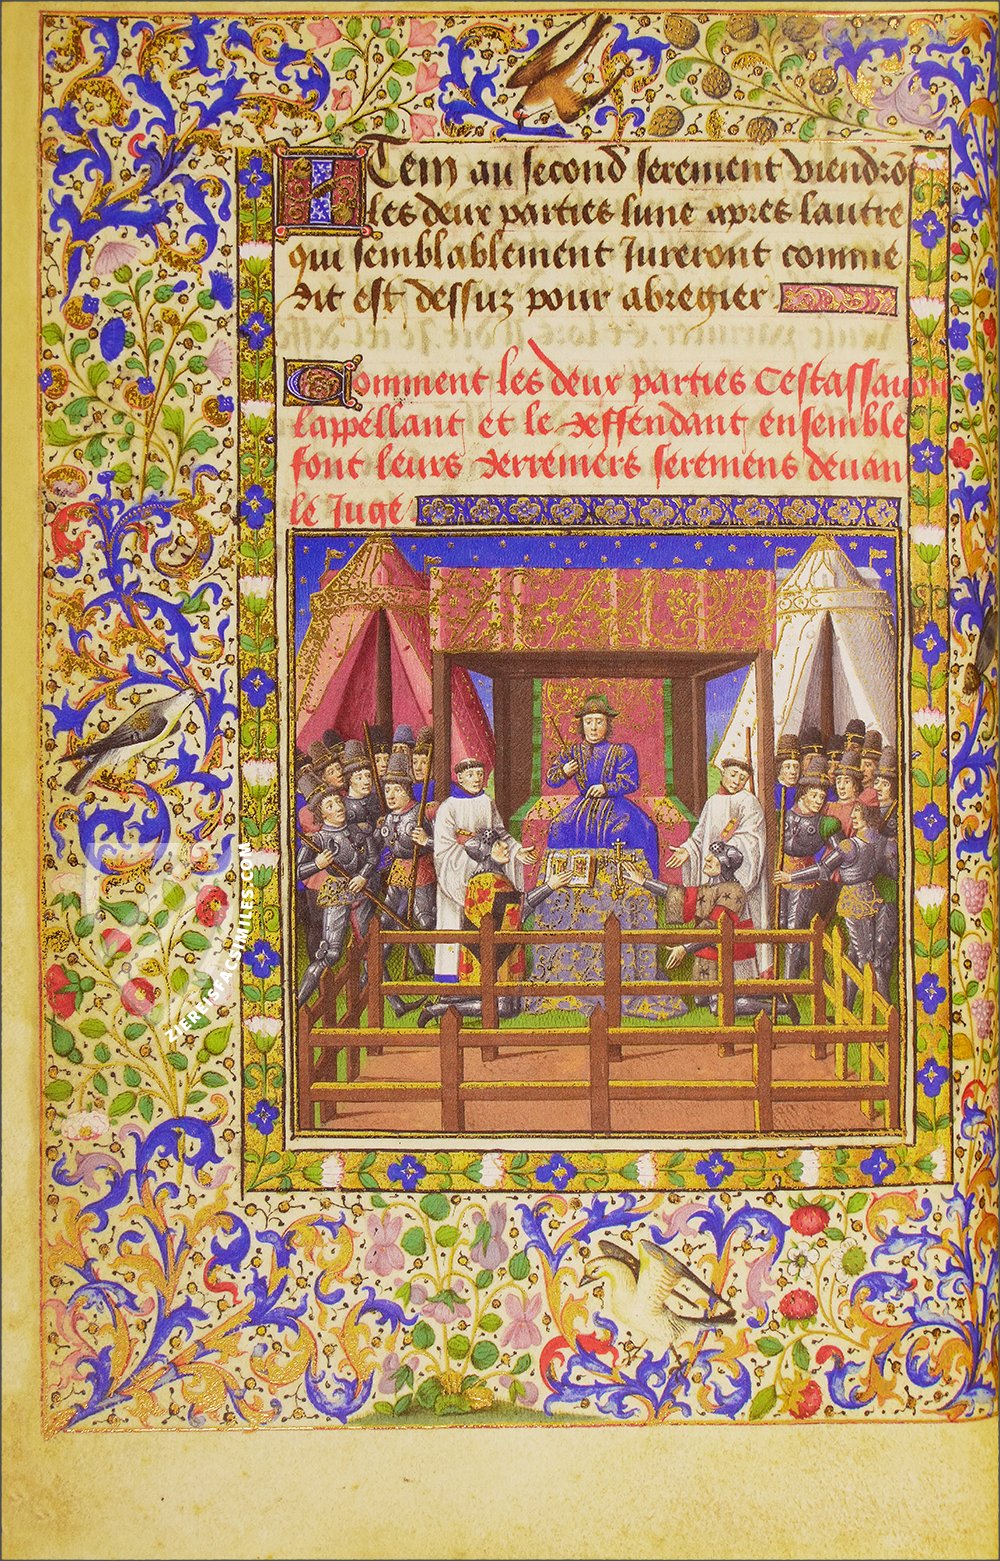 Item au second serement viendrõ
les deux parties lune apres lautre
qui semblablement Jureront comme
dit est dessuz pour abregier
Comment les deux parties Cestassauoir
lappellant et le deffendant ensemble
font leurs derreniers seremens deuan
le Juge
ZIEREISFACSIMILES.COM